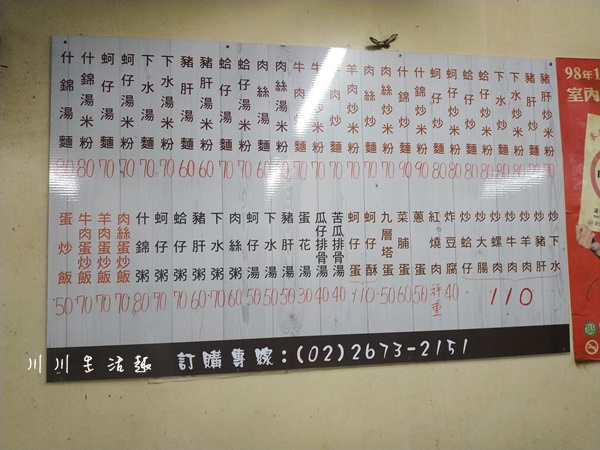 什錦湯麵
什錦湯米粉 80
蚵仔湯麵 70
蚵仔湯米粉 70
下水湯麵 70
下水湯米粉 70
豬肝湯麵 60
豬肝湯米粉 60
蛤仔湯麵 70
蛤仔湯米粉 70
肉絲湯麵 60
肉絲湯米粉
牛肉炒麵 70
牛肉炒米粉 70
羊肉炒麵 70
羊肉炒米粉 70
肉絲炒麵 70
肉絲炒米粉 70
什錦炒麵 90
什錦炒米粉 90
蚵仔炒麵 80
蚵仔炒米粉 80
蛤仔炒麵 80
蛤仔炒米粉 80
下水炒麵 80
下水炒米粉 80
豬肝炒麵 70
豬肝炒米粉 70
蛋炒飯 50
牛肉蛋炒飯 70
羊肉蛋炒飯 70
肉絲蛋炒飯 70
什錦粥 80
蚵仔粥 70
蛤仔粥 70
豬肝粥 60
下水粥 70
肉絲粥 60
蚵仔湯 50
下水湯 50
豬肝湯 50
蛋花湯 30
瓜仔排骨湯 40
苦瓜排骨湯 40
蚵仔蛋
蚵仔酥 110
九層塔蛋 50
菜脯蛋 60
蔥蛋 50
紅燒肉 秤重
炸豆腐 40
炒蛤
炒大腸
炒螺肉
炒牛肉
炒羊肉
炒豬肝
炒下水
110
訂購專線:(02)2673-2151
川川生活趣
98年1
室內